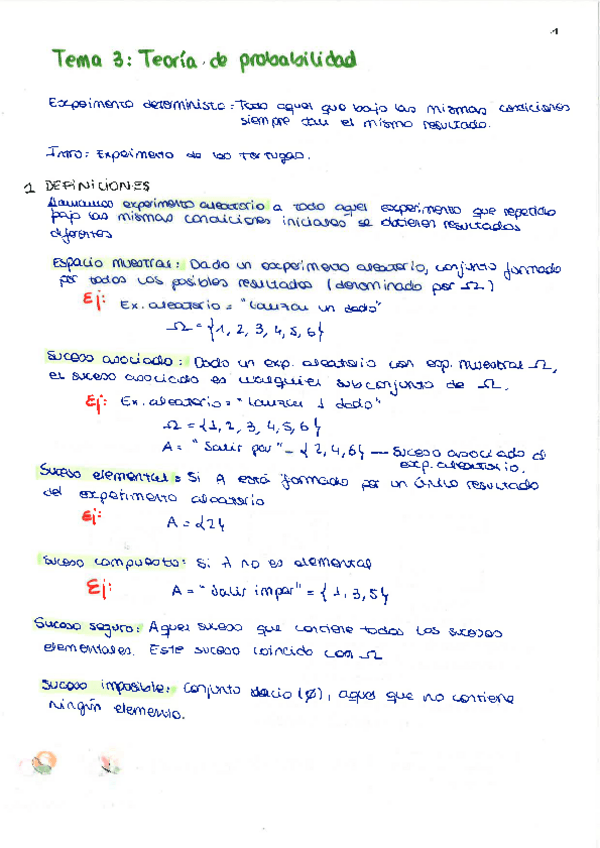 1
Tema 3: Teoría de probabilidad
Experimento determinista: Todo aquel que bajo las mismas condiciones
siempre dan el mismo resultado.
Intro: Experimento de las tortugas.
1 DEFINICIONES
Llamamos experimento aleatorio a todo aquel experimento que repetido
bajo las mismas condiciones iniciales se obtienen resultados
diferentes
Espacio muestral: Dado un experimento aleatorio, conjunto formado
por todos los posibles resultados (denominado por Ω)
Ej: Ex. aleatorio = "Lanzar un dado"
Ω = {1, 2, 3, 4, 5, 6}
Suceso asociado: Dado un exp. aleatorio con esp. muestral Ω,
el suceso asociado es cualquier subconjunto de Ω.
Ej: Ex. aleatorio = "Lanzar 1 dado"
Ω = {1, 2, 3, 4, 5, 6}
A = "Salir par" = {2, 4, 6} — Suceso asociado al
exp. aleatorio.
Suceso elemental: Si A está formado por un único resultado
del experimento aleatorio
Ej: A = {2}
Suceso compuesto: Si A no es elemental
Ej: A = "Salir impar" = {1, 3, 5}
Suceso seguro: Aquel suceso que contiene todos los sucesos
elementales. Este suceso coincide con Ω
Suceso imposible: Conjunto vacio (∅), aquel que no contiene
ningún elemento.